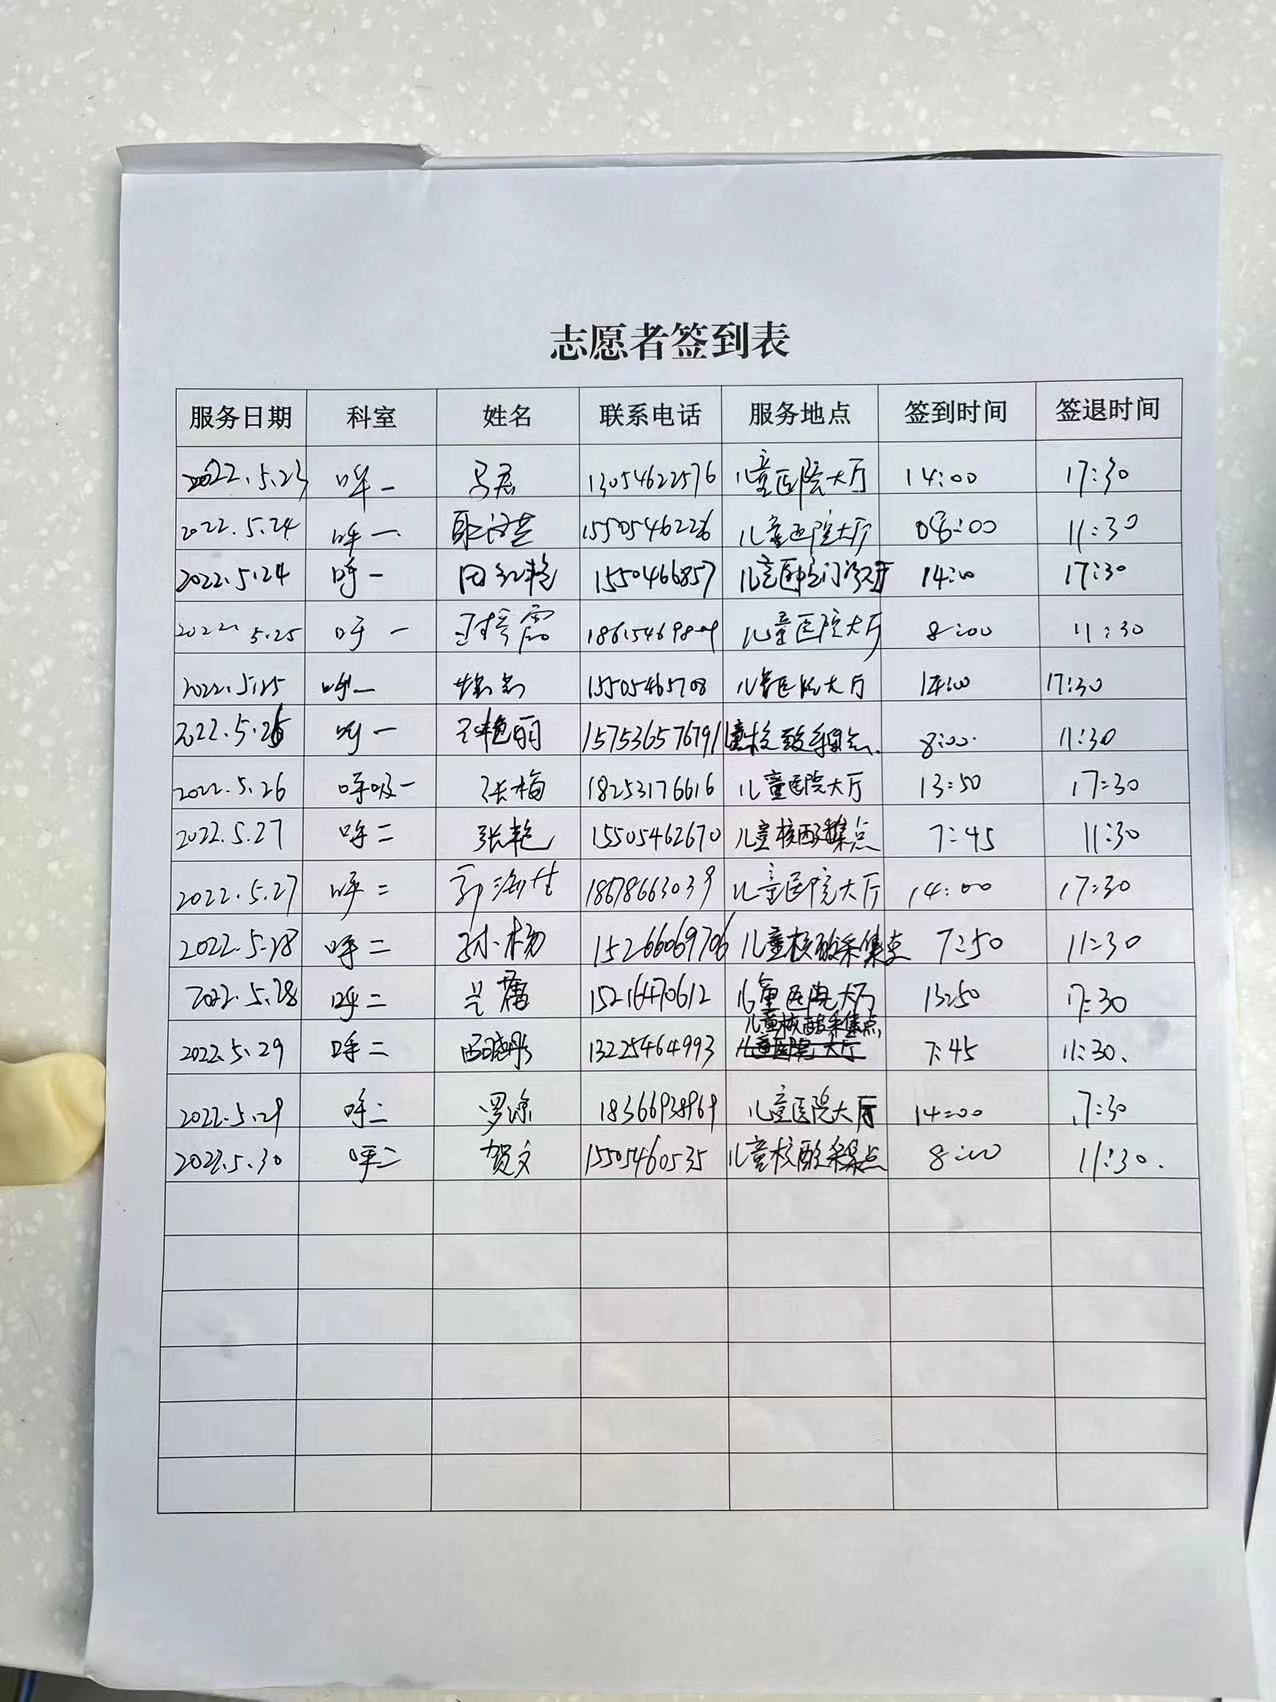 志愿者签到表
服务日期 科室 姓名 联系电话 服务地点 签到时间 签退时间
2022.5.23 呼一 马君 13054622576 儿童医院大厅 14:00 17:30
2022.5.24 呼一 15505462226 儿童医院大厅 08:00 11:30
2022.5.24 呼一 田红艳 1550466857 14:00 17:30
2022.5.25 呼一 儿童医院大厅 8:00 11:30
2022.5.25 呼一 15505465708 儿童医院大厅 14:00 17:30
2022.5.26 呼一 艳丽 8:00 11:30
2022.5.26 呼吸一 张梅 18253176616 儿童医院大厅 13:50 17:30
2022.5.27 呼二 张艳 15505462670 儿童核酸采集点 7:45 11:30
2022.5.27 呼二 郭海 18678663039 儿童医院大厅 14:00 17:30
2022.5.28 呼二 孙杨 15266069706 儿童核酸采集点 7:50 11:30
2022.5.28 呼二 15216470612 儿童医院大厅 13:50 17:30
儿童核酸采集点
2022.5.29 呼二 13225464993 儿童医院大厅 7:45 11:30.
2022.5.29 呼二 罗琼 18366938969 儿童医院大厅 14:00 17:30
2022.5.30 呼二 贺文 15505460535 儿童核酸采集点 8:00 11:30.